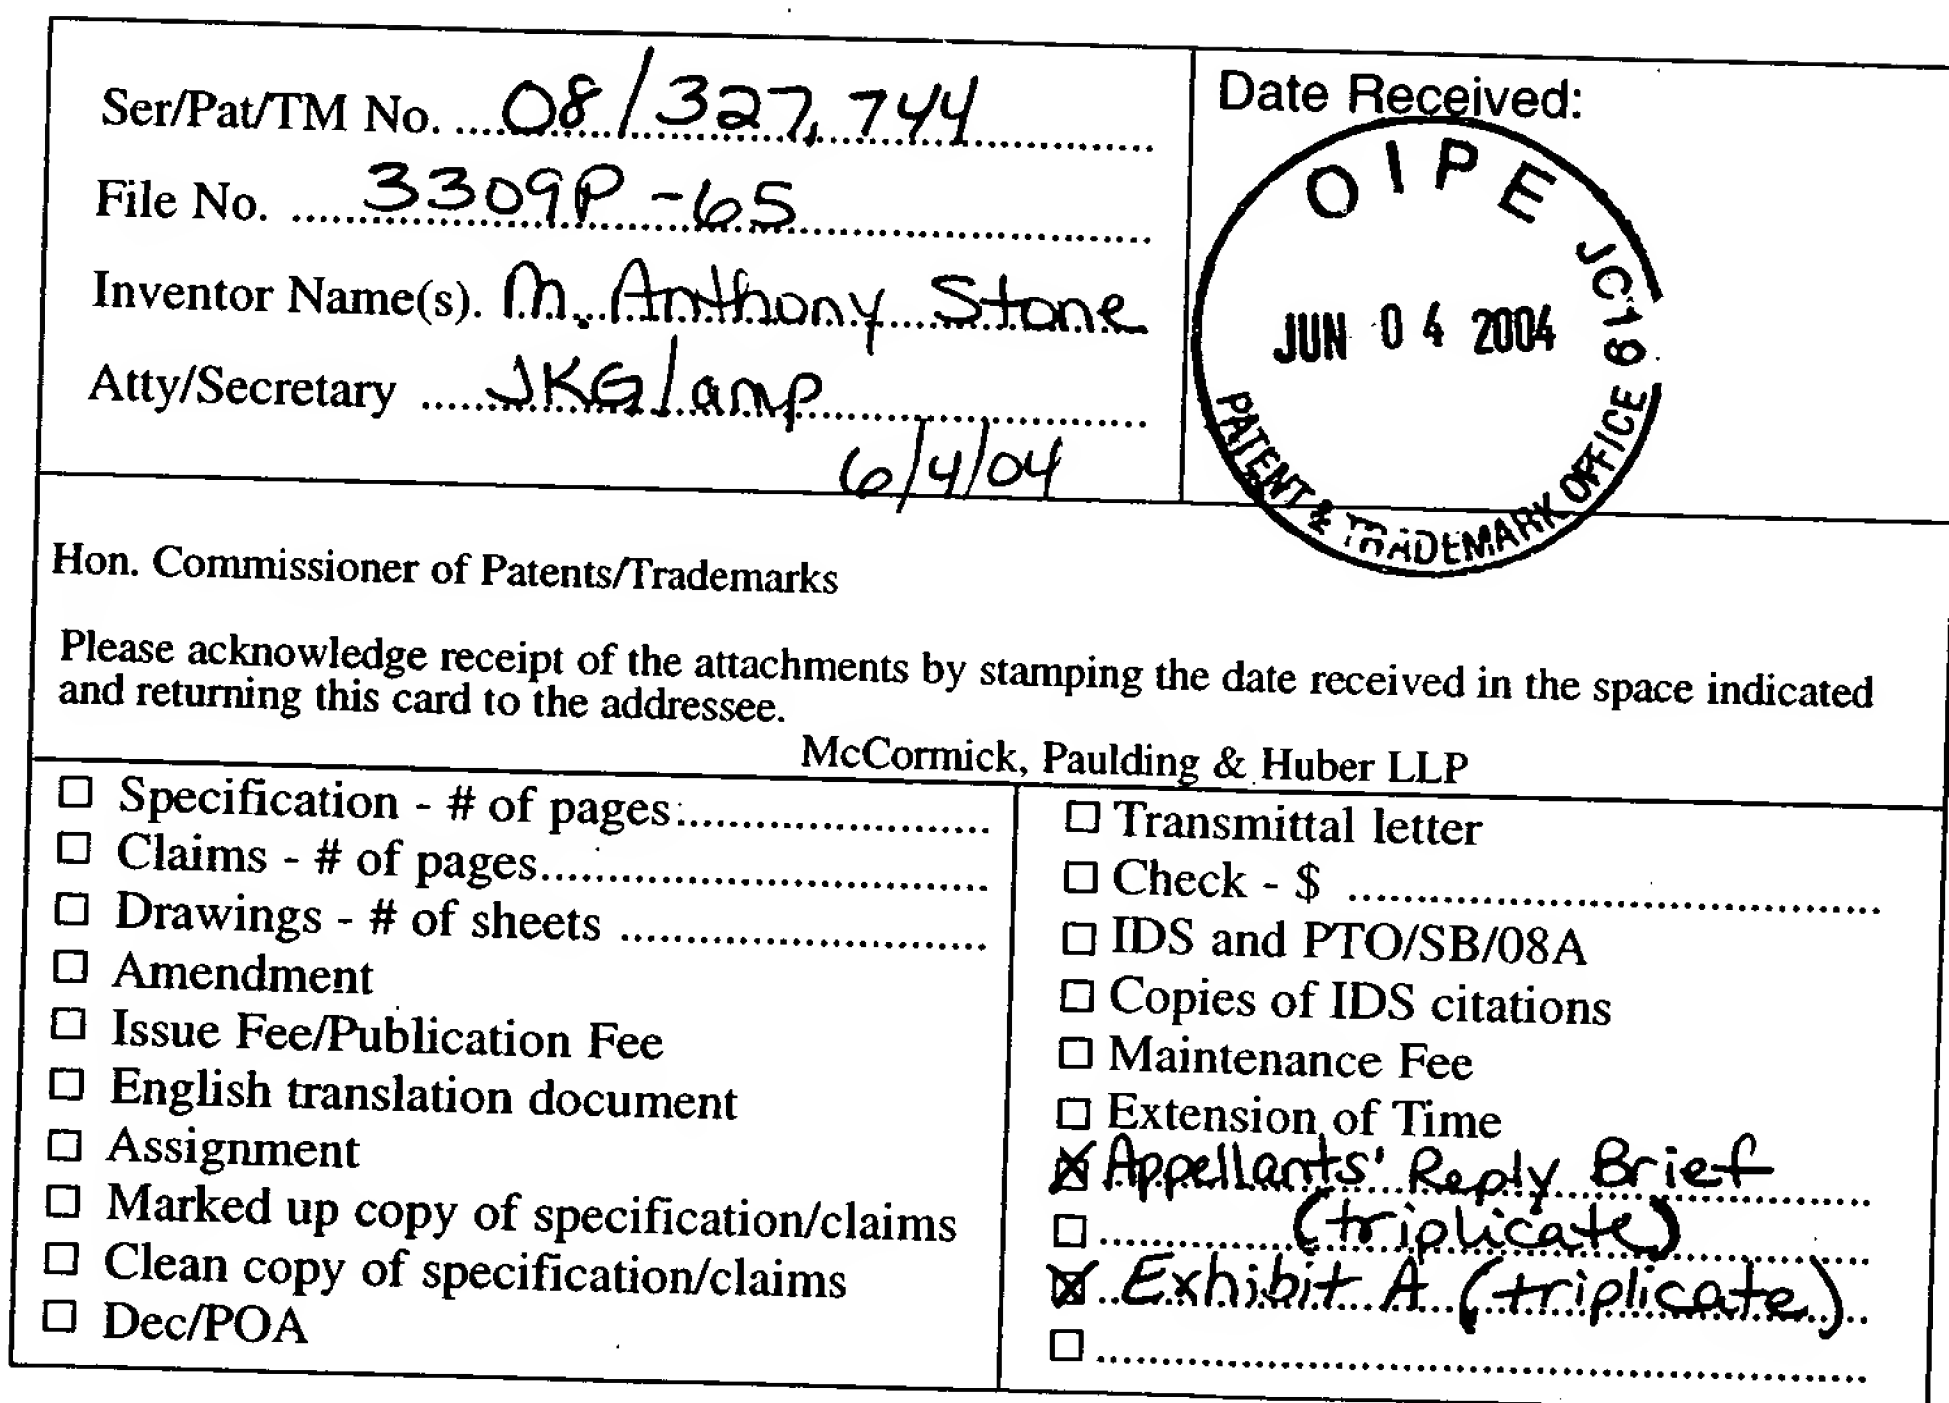 Ser/Pat/TM No. 08/327,744
File No. 3309P-65
Inventor Name(s). M. Anthony Stone
Atty/Secretary JKG/amp
6/4/04
Date Received:
OIPE JC19
JUN 04 2004
PATENT & TRADEMARK OFFICE
Hon. Commissioner of Patents/Trademarks
Please acknowledge receipt of the attachments by stamping the date received in the space indicated
and returning this card to the addressee.
McCormick, Paulding & Huber LLP
☐ Specification - # of pages:
☐ Claims - # of pages
☐ Drawings - # of sheets
☐ Amendment
☐ Issue Fee/Publication Fee
☐ English translation document
☐ Assignment
☐ Marked up copy of specification/claims
☐ Clean copy of specification/claims
☐ Dec/POA
☐ Transmittal letter
☐ Check - $
☐ IDS and PTO/SB/08A
☐ Copies of IDS citations
☐ Maintenance Fee
☐ Extension of Time
☒ Appellants' Reply Brief
☐ (triplicate)
☒ Exhibit A (triplicate)
☐